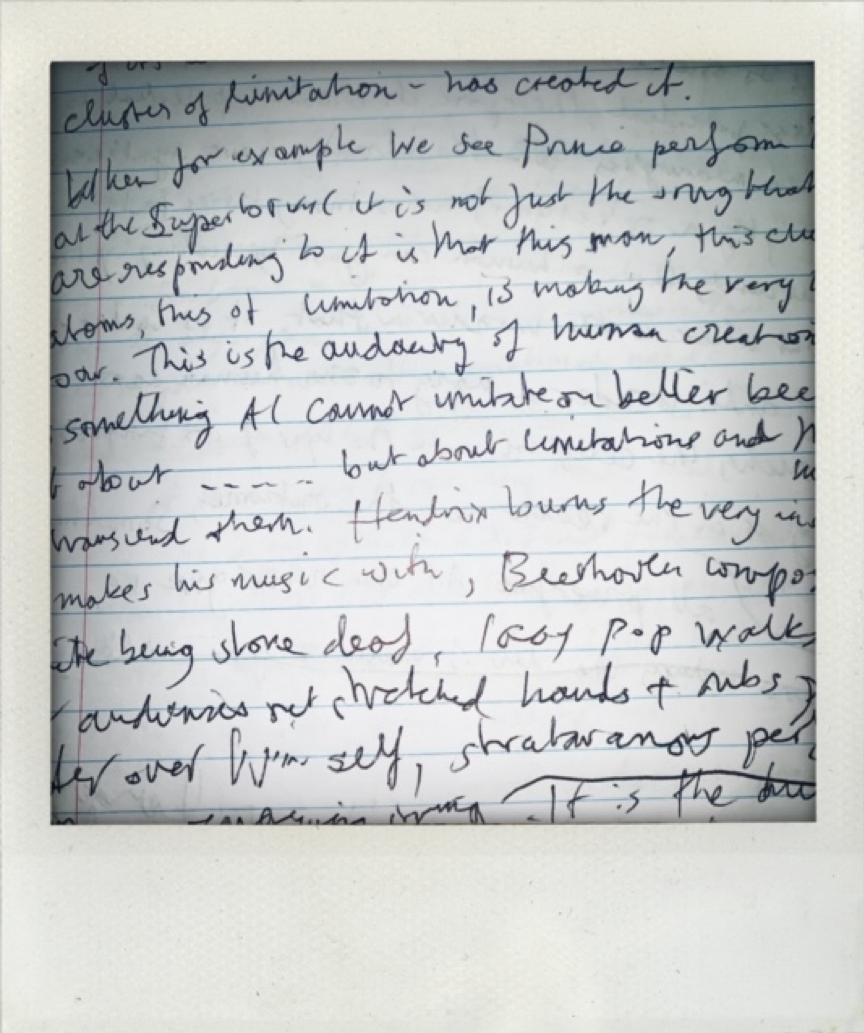 cluster of limitation - has created it.
When for example We see Prince perform
at the Superbowl it is not just the song that
are responding to it is that this man, this clu
atoms, this of limitation, is making the very
oar. This is the audacity of human creation
something AI cannot imitate or better bec
t about ----- but about limitations and
transcend them. Hendrix burns the very ins
makes his music with, Beethoven compos
ite being stone deaf, Iggy Pop walks
audiences out stretched hands + rubs
ter over himself, per
It is the au